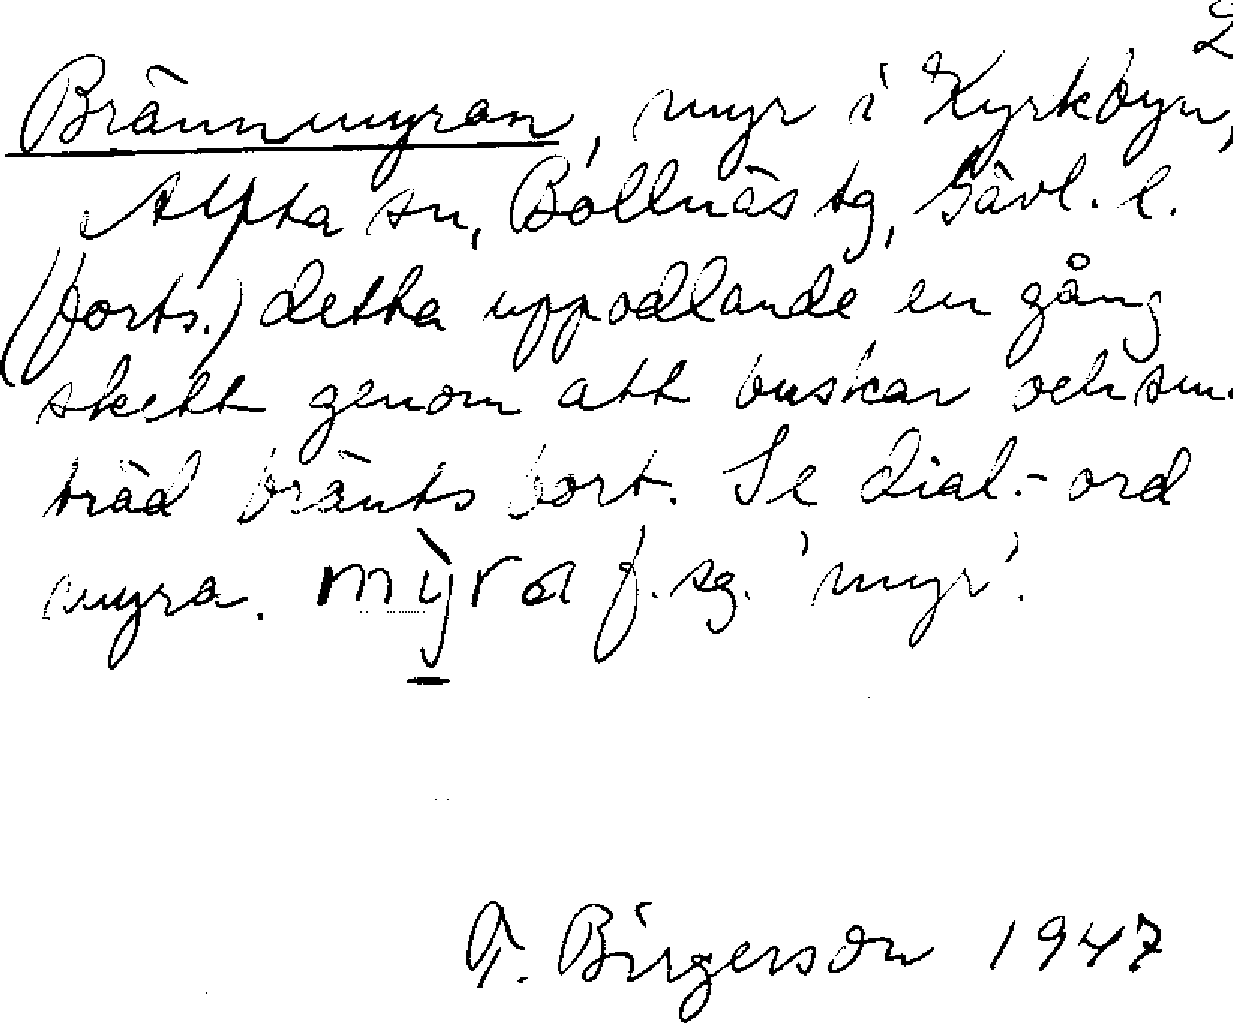 2
Brännmyran, myr i Kyrkbyn,
Alfta sn, Bollnäs tg, Gävl. l.
(forts.) detta uppodlande en gång
skett genom att buskar och sm.
träd bränts bort. Se dial.-ord
myra. mỳra f. sg. 'myr'.
Birgerson 1947